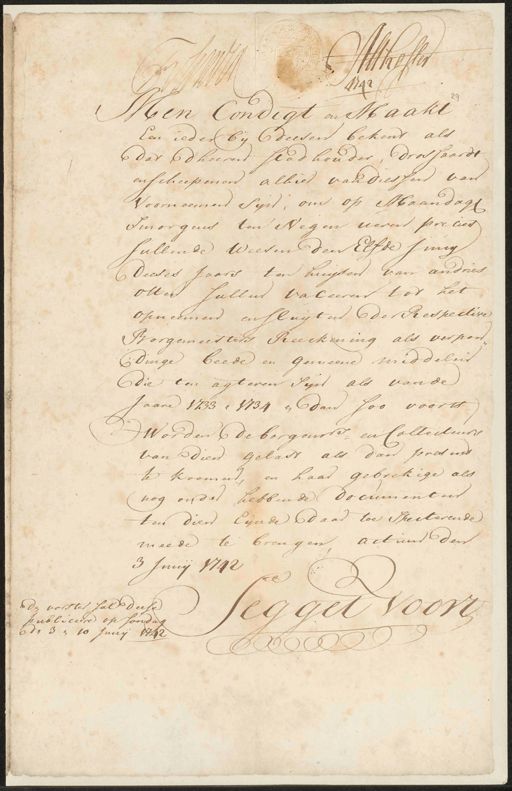 1742
29
Men Condigt en Maakt
Een ieder bij deesen bekent als
dat d'heeren stadhouder, drossaardt
en scheepenen alhier van diessen van
Voorneemen sijn, om op Maandagh
Smorgens ten Negen ueren precies
sullende weesen den Elfde Junij
deeses Jaars ten huijsen van andries
Otten sullen vaceeren tot het
opneemen en sluijten der Respective
Borgemeesters Reekening als verpon
dinge beede en gemeene middelen
die ten agteren sijn als van de
Jaare 1733 & 1734 & dan soo voorts
Worden de borgemrs. en Collecteurs
van dien gelast als dan present
te koomen, en haar gebrekige als
nog onder hebbende documenten
ten dien Eynde daar toe Specterende
meede te brengen, actum den
3 Junij 1742
Segget Voort
de vorster sal deese
publiceere op sondag
de 3 & 10 Junij 1742